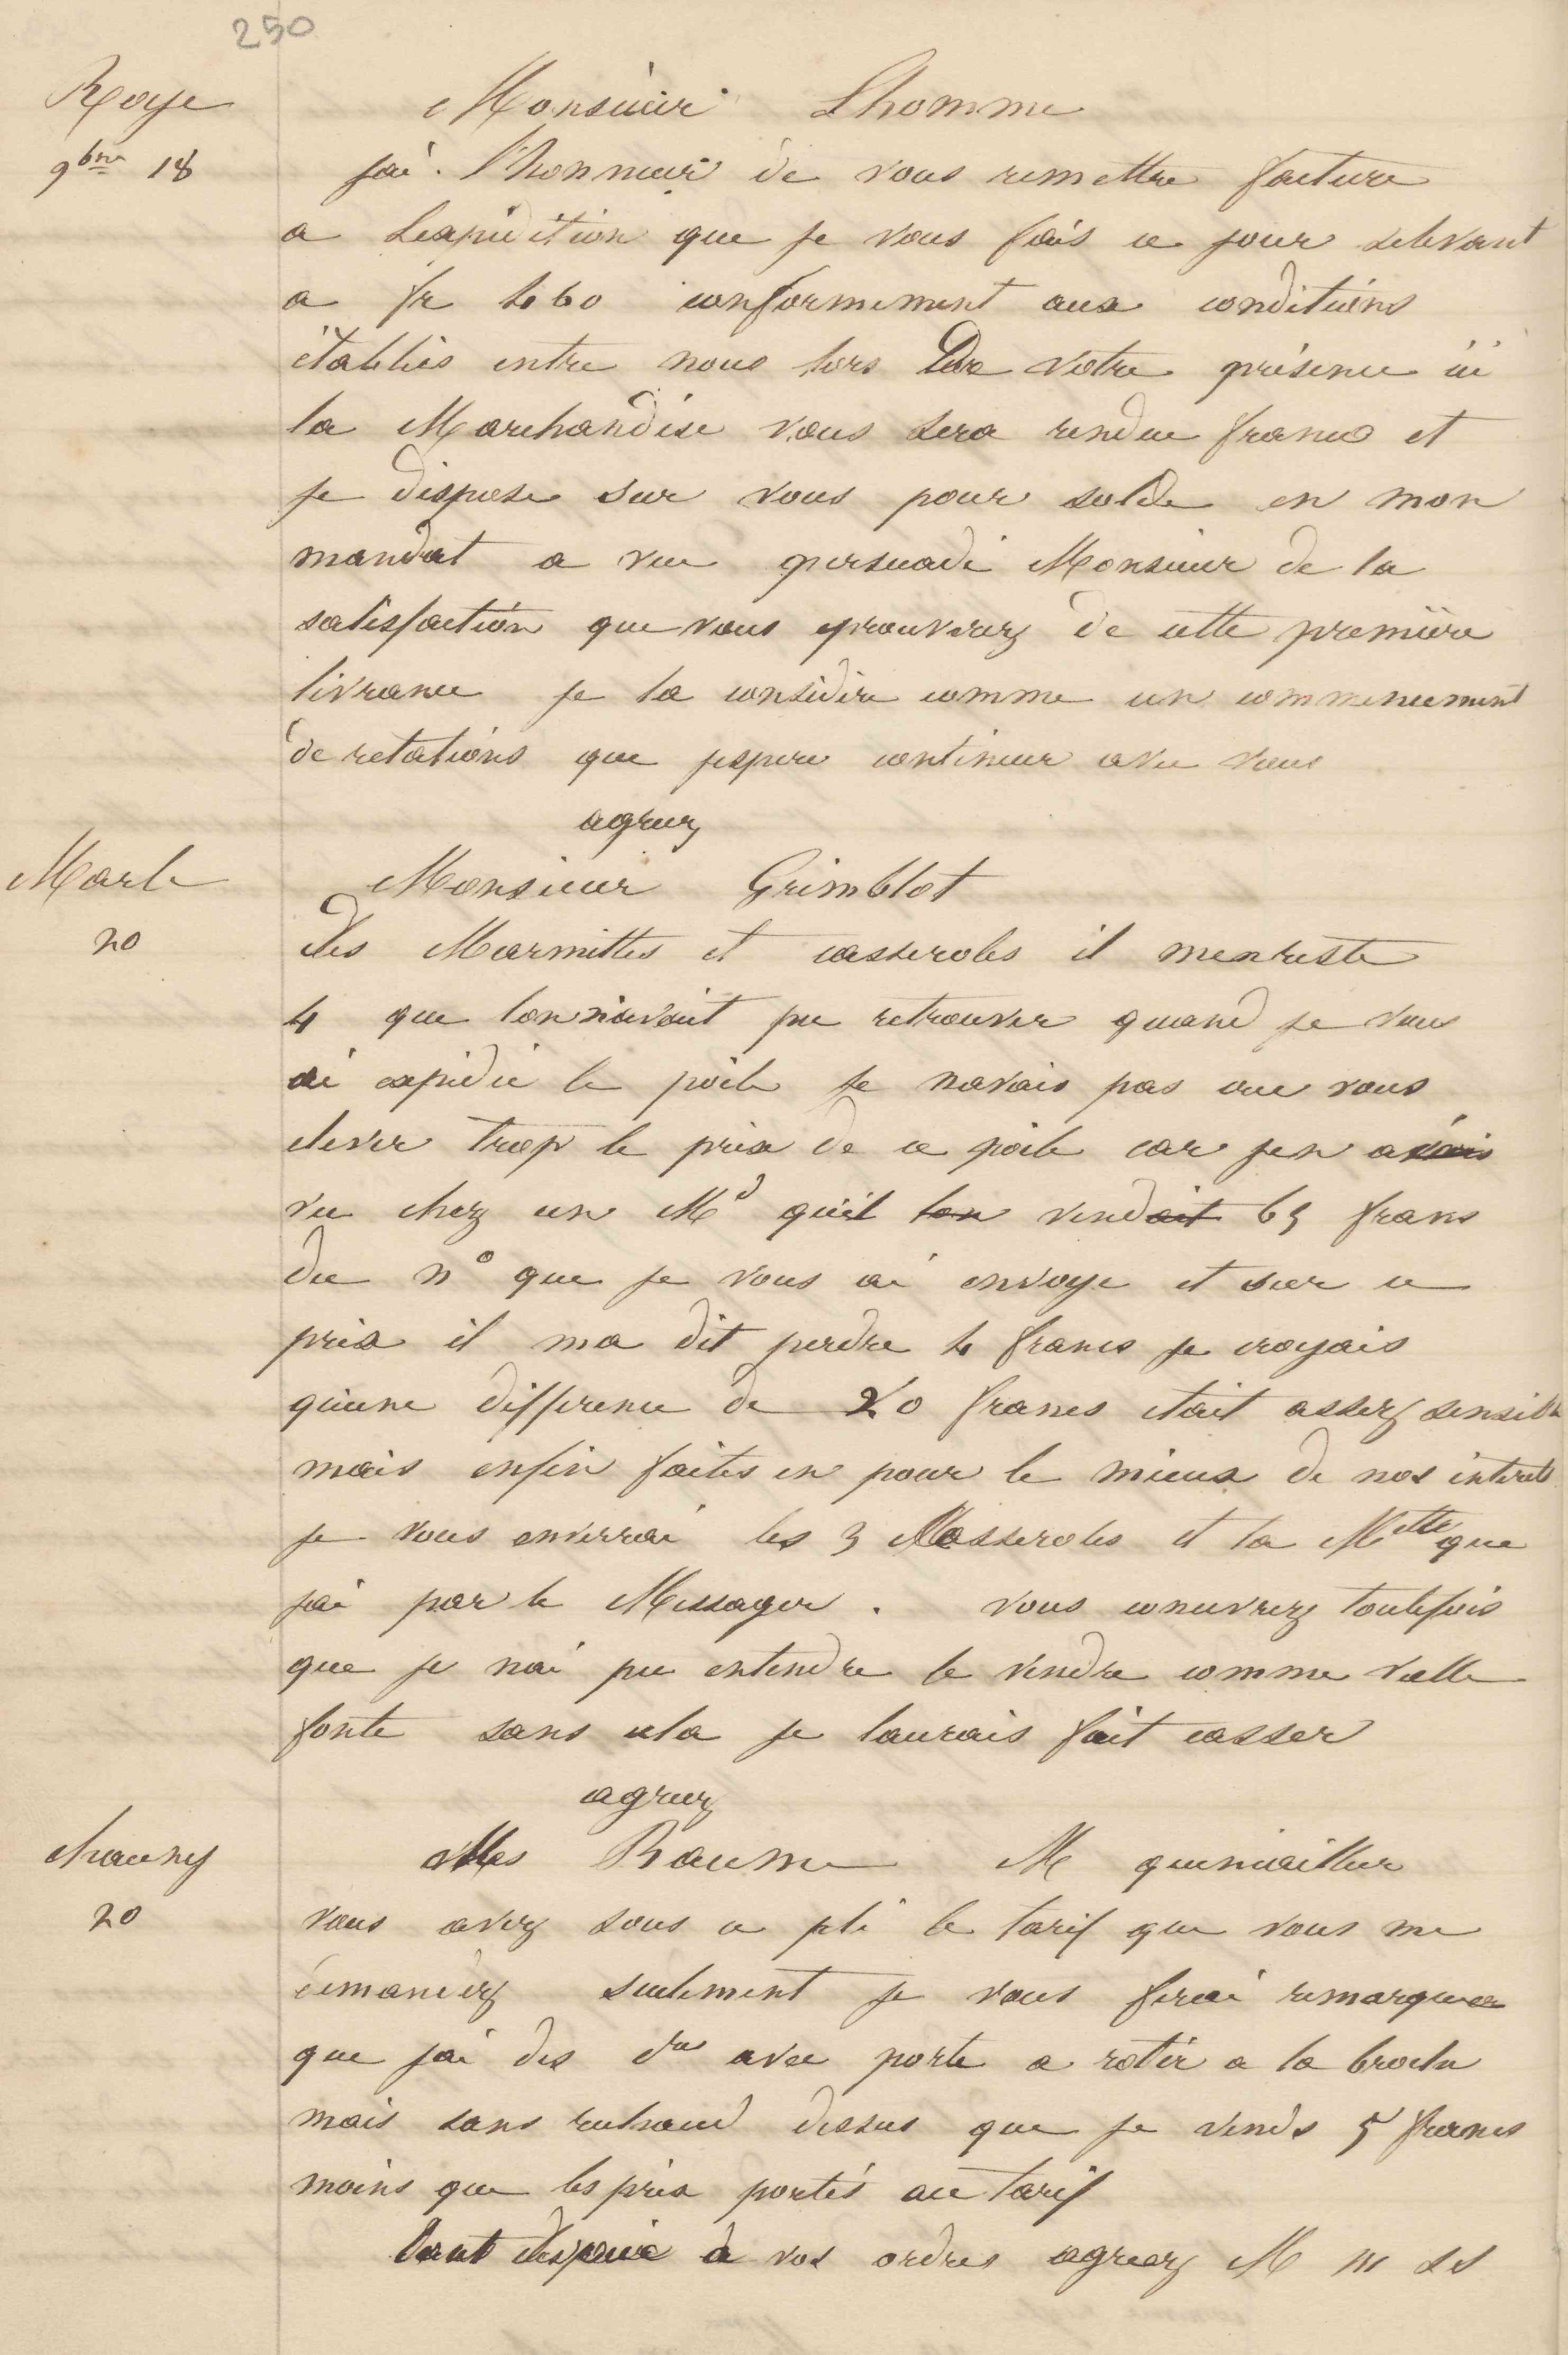 250
Roye
9bre 18
Monsieur Lhomme
jai l'honneur de vous remettre facture
a Lexpedition que je vous fais ce jour selevant
a fr 460 conformement aux conditions
établies entre nous lors De votre présence ici
la Marchandise vous sera rendue franco et
je dispose sur vous pour solde en mon
mandat a vue persuadé Monsieur de la
satisfaction que vous eprouverez de cette première
livrance je la considère comme un commencement
de relations que jespere continuer avec vous
agreez
Marle
20
Monsieur Grimblot
Des Marmittes et casseroles il men reste
4 que lon navait pu retrouver quand je vous
ai expédié le poële je navais pas cru vous
elever trop le prix de ce poële car jen avais
vu chez un Md quil lon vendait 65 francs
du n° que je vous ai envoye et sur ce
prix il ma dit perdre 4 francs je croyais
quune difference de 20 francs etait assez sensible
mais enfin faites en pour le mieux de nos interets
je vous enverrai les 3 Casseroles et la Mtte que
jai par le Messager. vous concevrez toutefois
que je nai pu entendre le vendre comme vielle
fonte sans cela je laurais fait casser
agreez
Chauny
20
Mes Baume M quincailler
vous avez sous ce pli le tarif que vous me
demandez seulement je vous ferai remarquer
que jai des avec porte a rotir a la broche
mais sans rechaud dessus que je vends 5 francs
moins que les prix portés au tarif
tout a vos ordres agreez M m ss